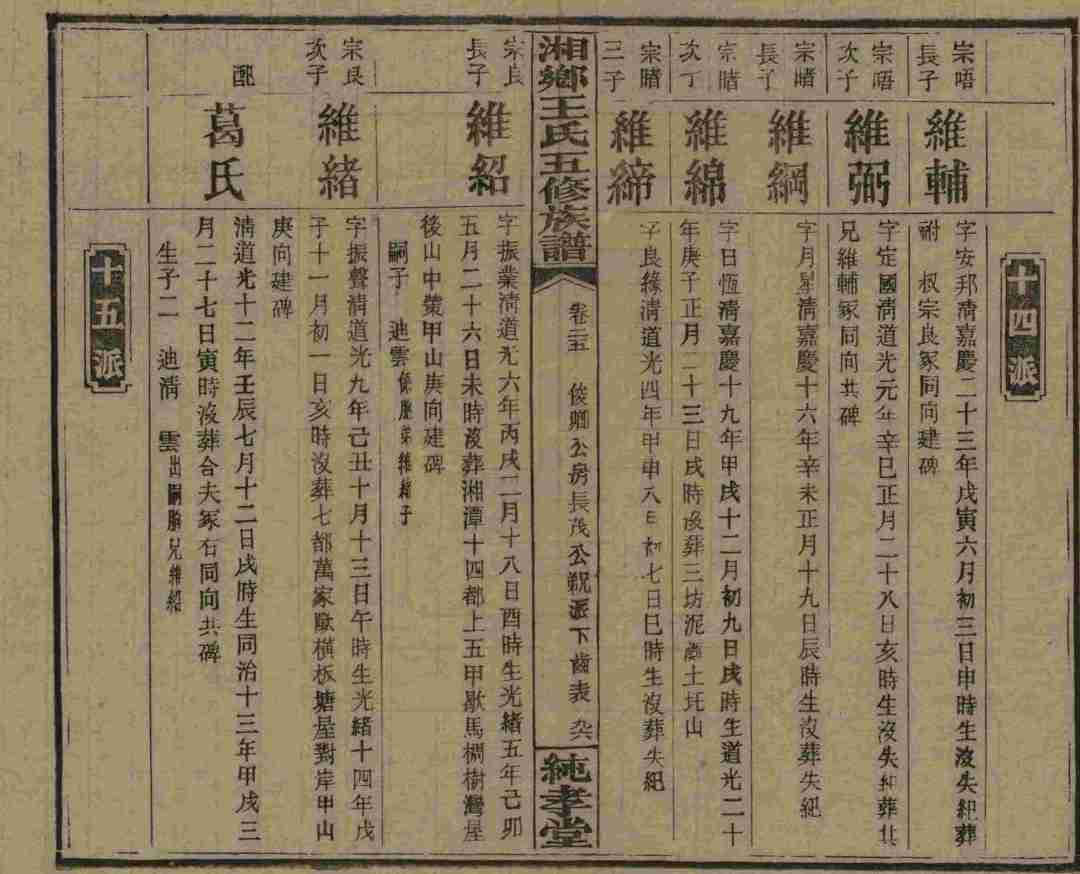 十四派
宗唔長子
維輔
字安邦淸嘉慶二十三年戊寅六月初三日申時生沒失紀葬
祔 叔宗良冢同向建碑
宗唔次子
維弼
字定國淸道光元年辛巳正月二十八日亥時生沒失紀葬
兄維輔冢同向共碑
宗睹長子
維綱
字月星淸嘉慶十六年辛未正月十九日辰時生沒葬失紀
宗睹次子
維綿
字日恆淸嘉慶十九年甲戌十二月初九日戌時生道光二十
年庚子正月二十三日戌時沒葬三坊泥 土圫山
宗睹三子
維締
字良緣淸道光四年甲申八月初七日巳時生沒葬失紀
湘鄉王氏五修族譜
卷二五 俊卿公房長茂公 派下齒表
純孝堂
宗良長子
維紹
字振業淸道光六年丙戌二月十八日酉時生光緒五年己卯
五月二十六日未時沒葬湘潭十四都上五甲歇馬椆樹灣屋
後山中 甲山庚向建碑
嗣子 迪雲係胞弟維緒子
宗良次子
維緒
字振聲淸道光九年己丑十月十三日午時生光緒十四年戊
子十一月初一日亥時沒葬七都萬家 橫板塘屋對岸甲山
庚向建碑
配
葛氏
淸道光十二年壬辰七月十二日戌時生同治十三年甲戌三
月二十七日寅時沒葬合夫冢右同向共碑
生子二 迪淸 雲出嗣胞兄維紹
十五派